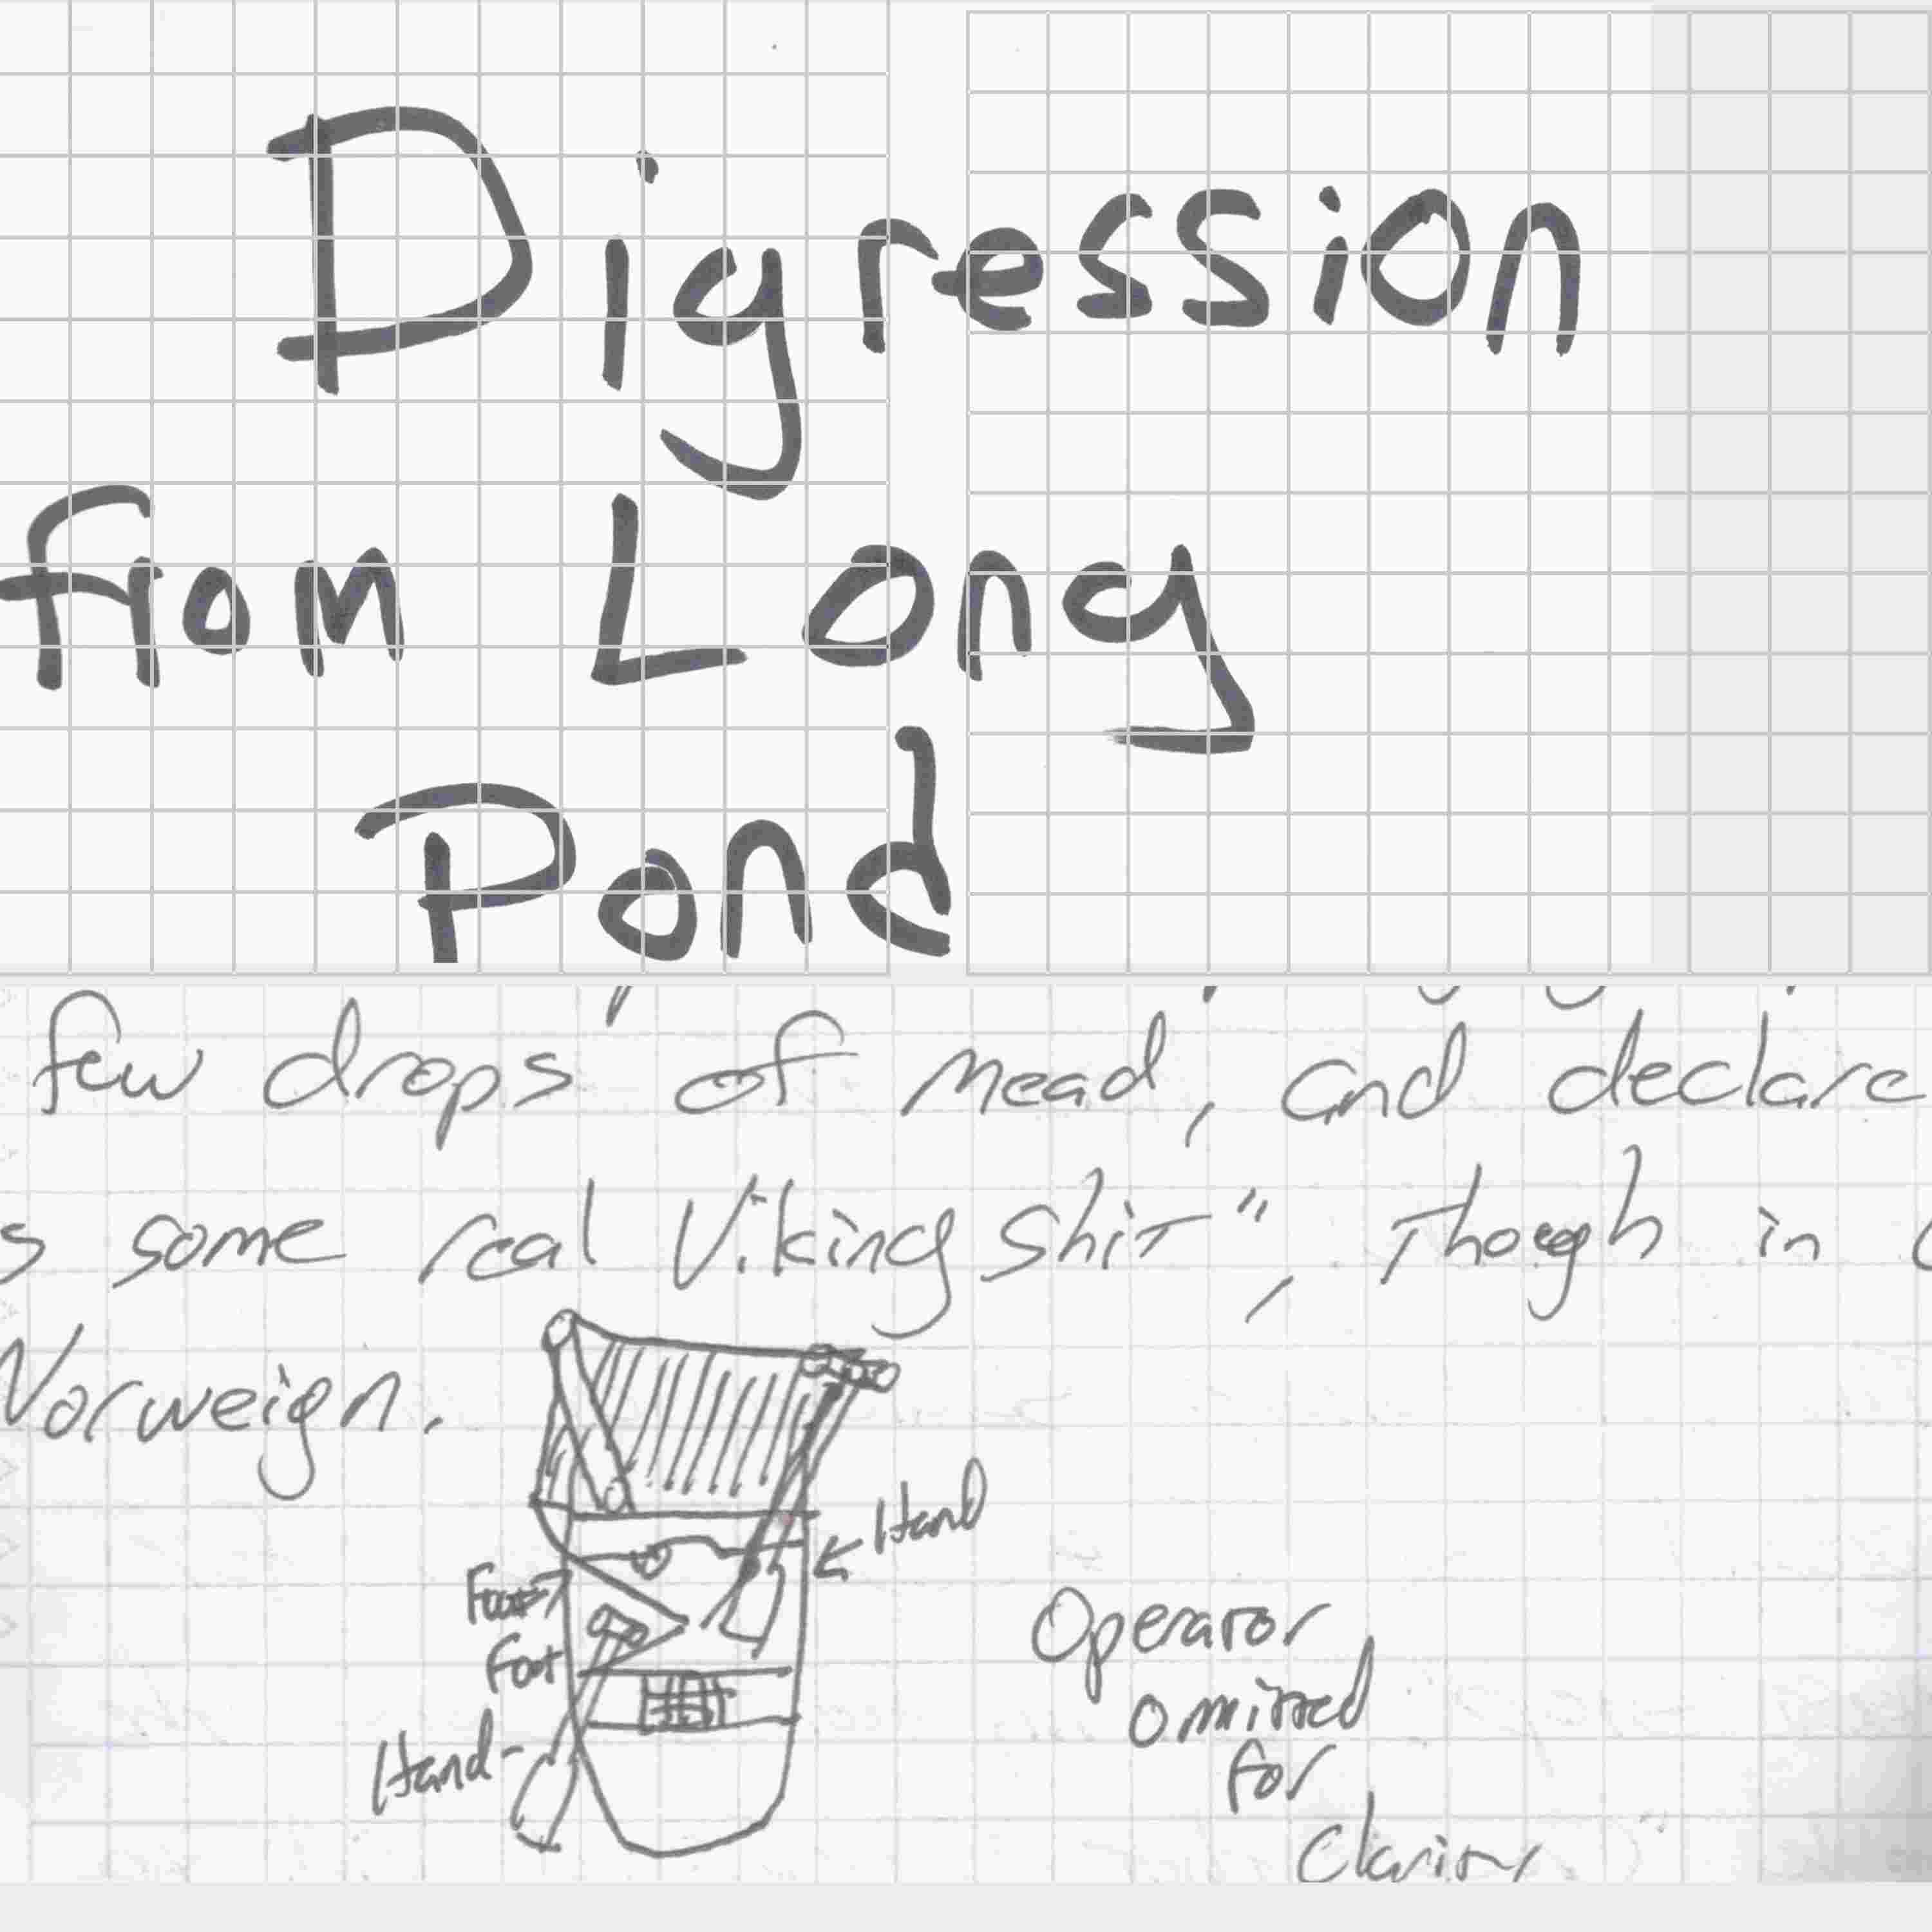 Digression
from Long
Pond
few drops of mead, and declare
s some real Viking shit", though in
Norweign.
Hand
Foot
Foot
Hand
Operator
omitted
for
Clarity